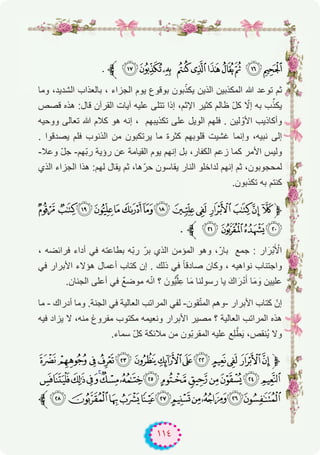 ٱلْجَحِيمِ ﴿١٦﴾ ثُمَّ يُقَالُ هَٰذَا ٱلَّذِى كُنتُم بِهِۦ تُكَذِّبُونَ ﴿١٧﴾ .
ثم توعد الله المكذبين الذين يكذّبون بوقوع يوم الجزاء ، بالعذاب الشديد، وما
يكذّب به إلّا كلّ ظالم كثير الإثم، إذا تتلى عليه آيات القرآن قال: هذه قصص
وأكاذيب الأوّلين . فلهم الويل على تكذيبهم ، إنه هو كلام الله تعالى ووحيه
إلى نبيه، وإنما غشيت قلوبهم كثرة ما يرتكبون من الذنوب فلم يصدقوا .
وليس الأمر كما زعم الكفار، بل إنهم يوم القيامة عن رؤية ربّهم- جلّ وعلا-
لمحجوبون، ثم إنهم لداخلو النار يقاسون حرّها، ثم يقال لهم: هذا الجزاء الذي
كنتم به تكذبون.
كَلَّآ إِنَّ كِتَٰبَ ٱلْأَبْرَارِ لَفِى عِلِّيِّينَ ﴿١٨﴾ وَمَآ أَدْرَىٰكَ مَا عِلِّيُّونَ ﴿١٩﴾ كِتَٰبٌ مَّرْقُومٌ
﴿٢٠﴾ يَشْهَدُهُ ٱلْمُقَرَّبُونَ ﴿٢١﴾ .
ٱلْأَبْرَارِ : جمع بارّ، وهو المؤمن الذي برّ ربّه بطاعته في أداء فرائضه ،
واجتناب نواهيه ، وكان صادقاً في ذلك . إن كتاب أعمال هؤلاء الأبرار في
عليين وَمَا أَدْرَاكَ يا رسولنا مَا عِلِّيُّونَ ؟ انّه موضعٌ في أعلى الجنان.
إنَّ كتاب الأبرار -وهم المتّقون- لفي المراتب العالية في الجنة. وما أدراك - ما
هذه المراتب العالية ؟ مصير الأبرار ونعيمه مكتوب مفروغ منه، لا يزاد فيه
ولا يُنقص، يَطَّلِع عليه المقرّبون من ملائكة كلّ سماء.
إِنَّ ٱلْأَبْرَارَ لَفِى نَعِيمٍ ﴿٢٢﴾ عَلَى ٱلْأَرَآئِكِ يَنظُرُونَ ﴿٢٣﴾ تَعْرِفُ فِى وُجُوهِهِمْ نَضْرَةَ
ٱلنَّعِيمِ ﴿٢٤﴾ يُسْقَوْنَ مِن رَّحِيقٍ مَّخْتُومٍ ﴿٢٥﴾ خِتَٰمُهُۥ مِسْكٌ ۚ وَفِى ذَٰلِكَ فَلْيَتَنَافَسِ
ٱلْمُتَنَٰفِسُونَ ﴿٢٦﴾ وَمِزَاجُهُۥ مِن تَسْنِيمٍ ﴿٢٧﴾ عَيْنًا يَشْرَبُ بِهَا ٱلْمُقَرَّبُونَ ﴿٢٨﴾
١١٤